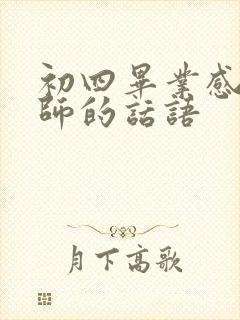 初四畢業感
師的話語
月下高歌